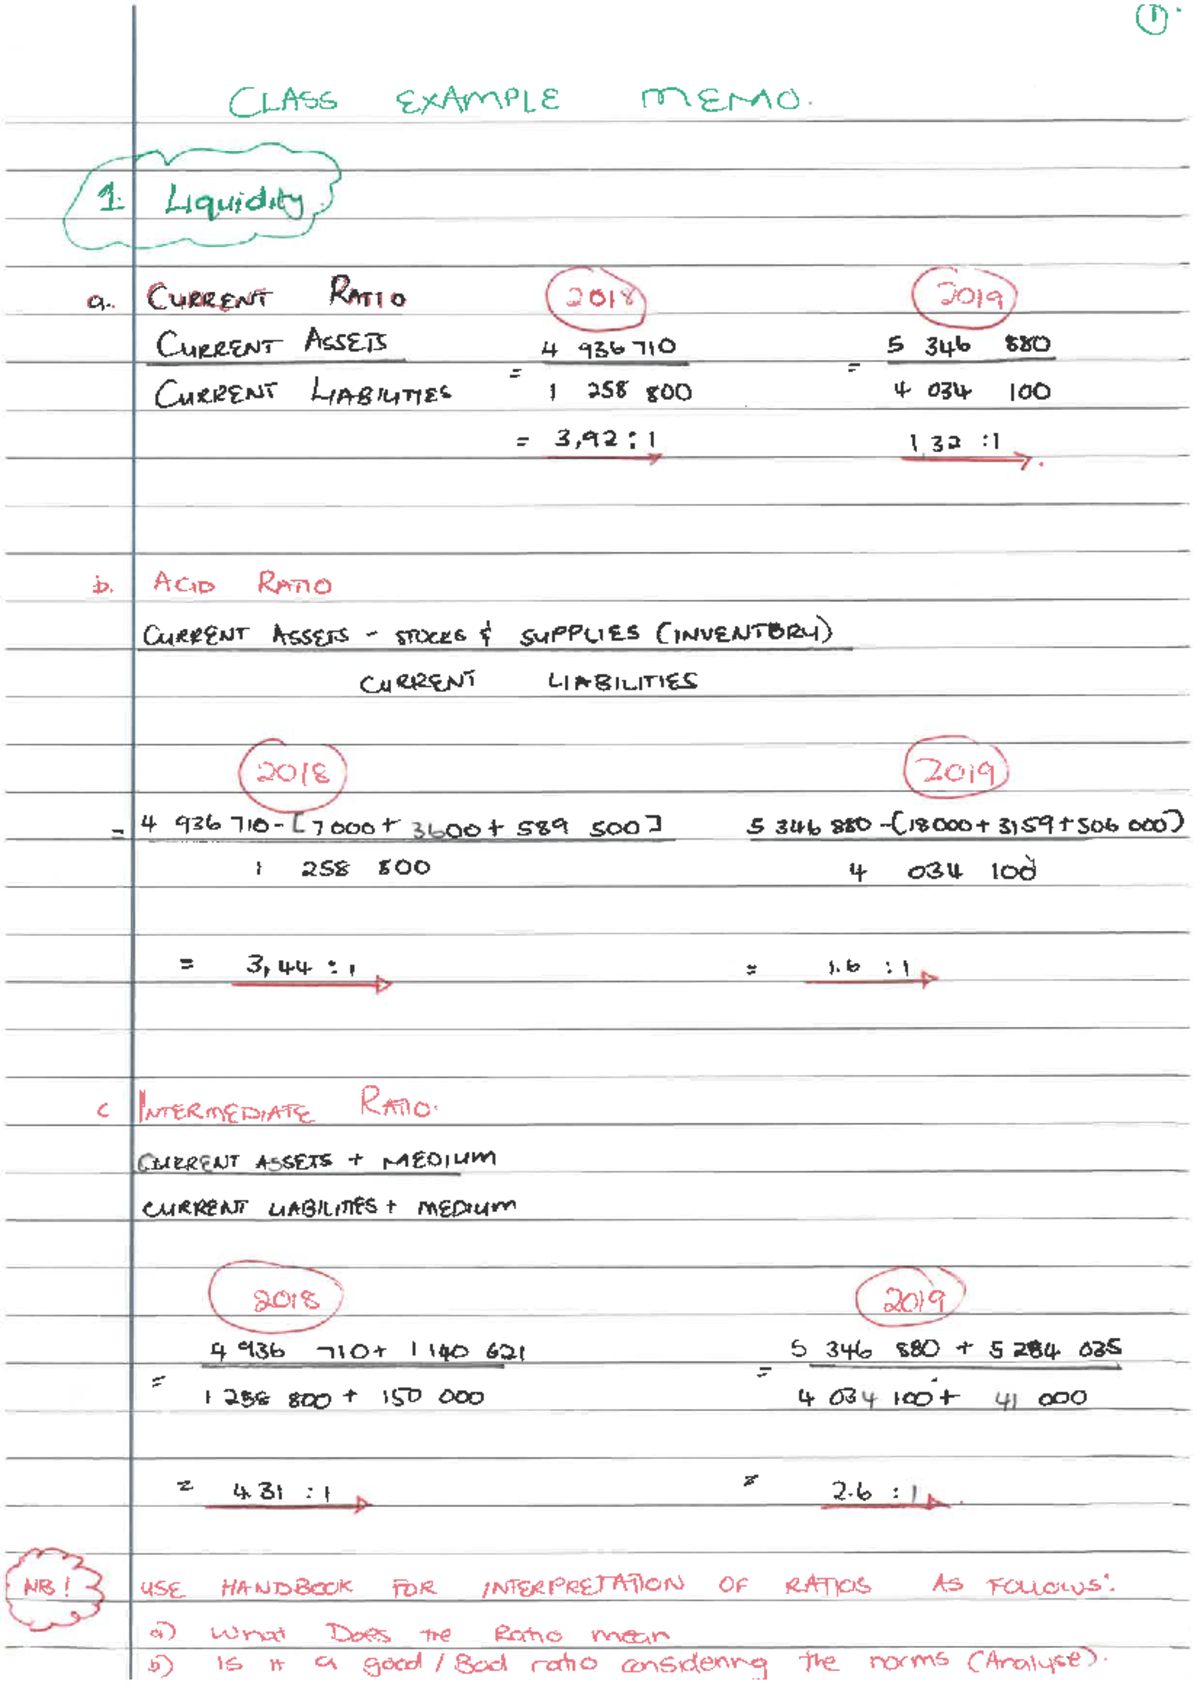 1.
CLASS EXAMPLE MEMO.
1. Liquidity.
a. CURRENT RATIO 2018 2019
CURRENT ASSETS 4 936 710 5 346 880
= =
CURRENT LIABILITIES 1 258 800 4 034 100
= 3,92 : 1 1,32 : 1
b. ACID RATIO
CURRENT ASSETS - STOCKS & SUPPLIES (INVENTORY)
CURRENT LIABILITIES
2018 2019
= 4 936 710 - [7000 + 3600 + 589 500] 5 346 880 - (18000 + 3159 + 506 000)
1 258 800 4 034 100
= 3,44 : 1 = 1.6 : 1
c INTERMEDIATE RATIO.
CURRENT ASSETS + MEDIUM
CURRENT LIABILITIES + MEDIUM
2018 2019
4 936 710 + 1 140 621 5 346 880 + 5 284 035
= =
1 258 800 + 150 000 4 034 100 + 41 000
= 4.31 : 1 = 2.6 : 1
NB! USE HANDBOOK FOR INTERPRETATION OF RATIOS AS FOLLOWS:
a) What Does the Ratio mean
b) Is it a good / Bad ratio considering the norms (Analyse).